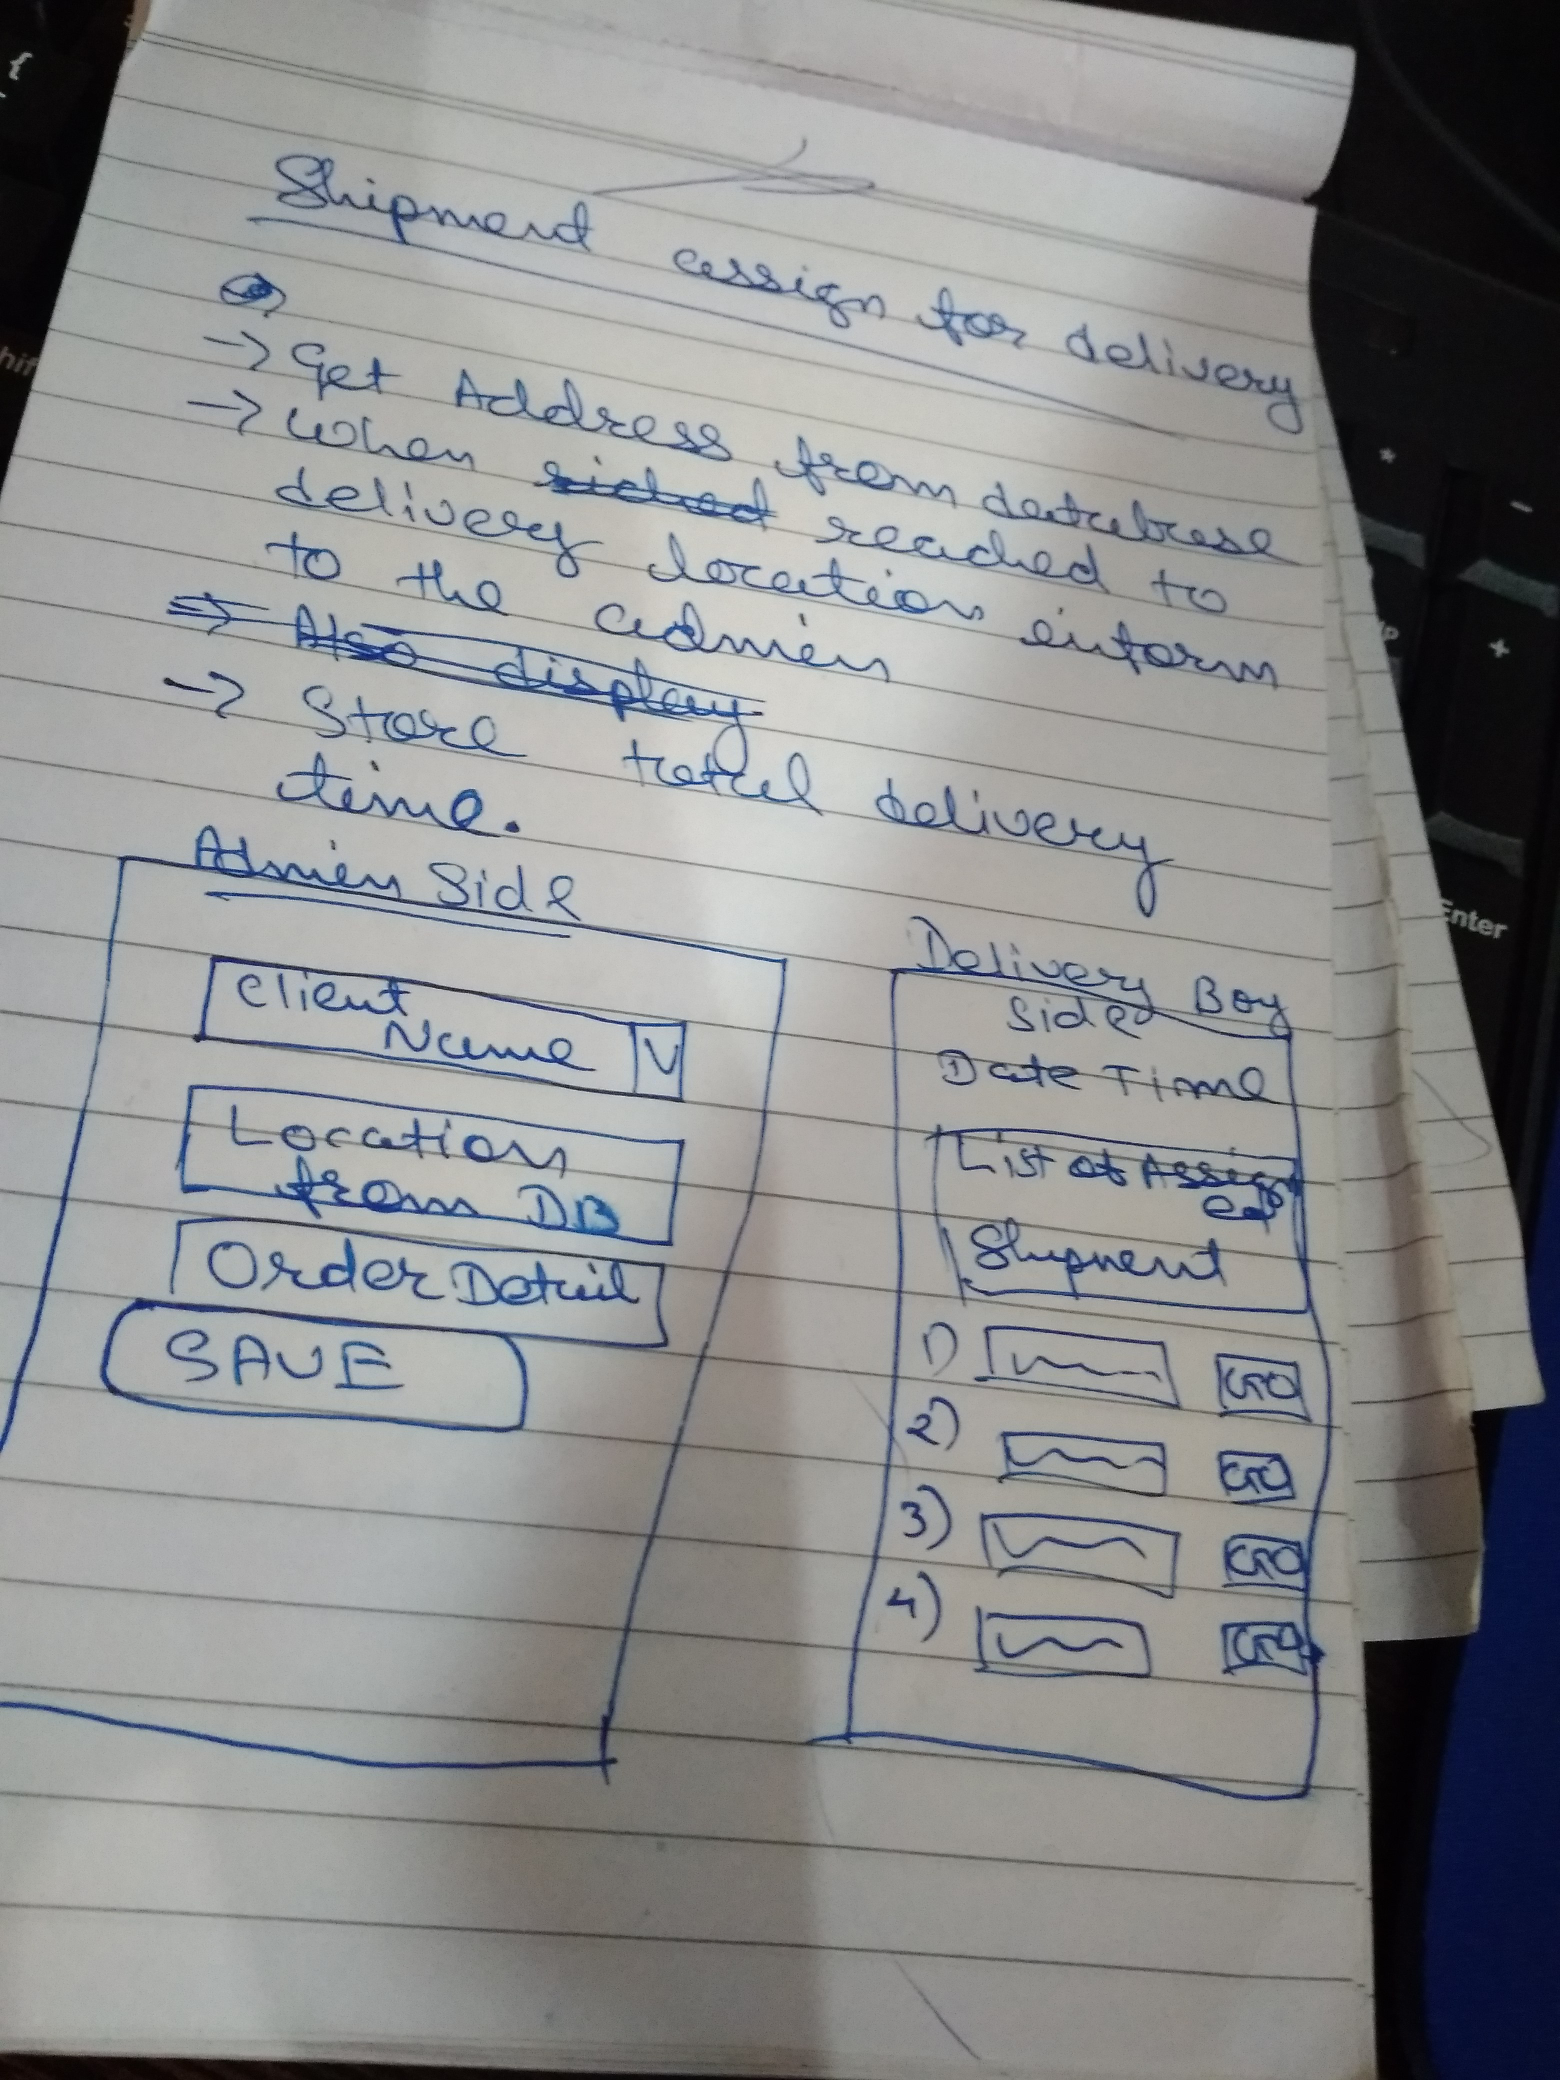 Shipment assign for delivery
-> Get Address from database
-> When reached to
delivery location inform
to the admin
=> Also display
-> Store total delivery
time.
Admin Side
Client
Name V
Location
from DB
Order Detail
SAVE
Delivery Boy
Side
Date Time
List of Assign
ed
Shipment
1) GO
2) GO
3) GO
4) GO
{
Shif
*
-
+
Enter